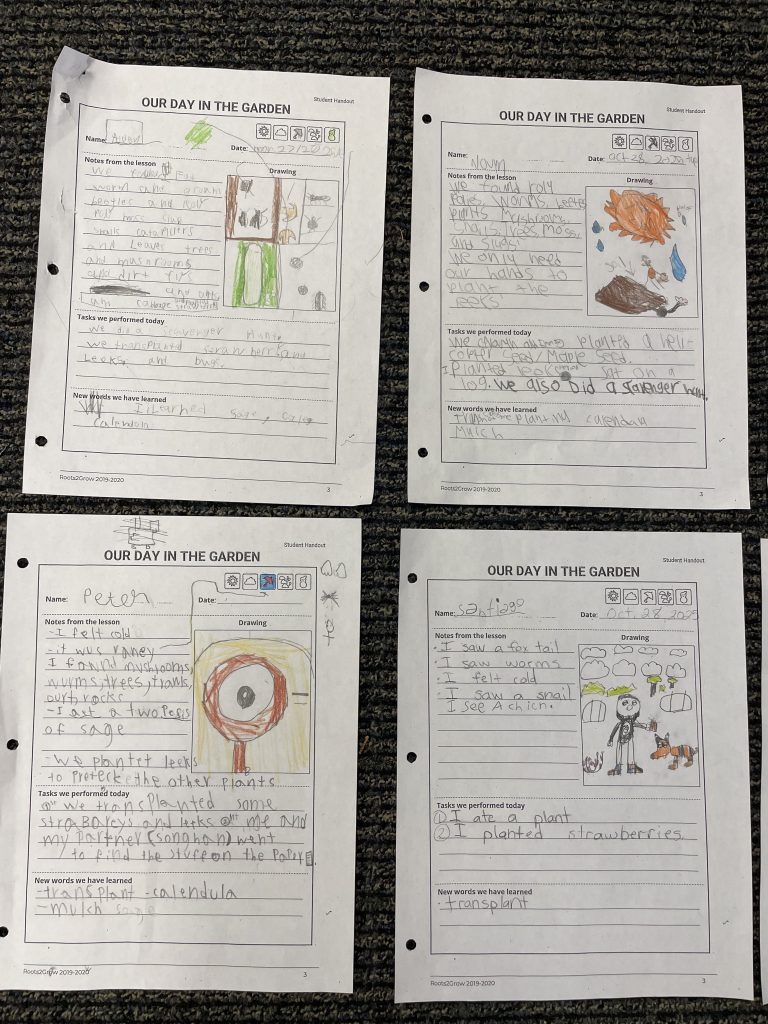 Student Handout
OUR DAY IN THE GARDEN
Name:
Date:
Notes from the lesson
Drawing
We
worm and
beetles and roly
poly moss slug
snails
and leaves trees
and mushrooms
and dirt
and
Tasks we performed today
We did a scavenger hunt
we transplant strawberrs and
Leeks and bugs.
New words we have learned
I learned sage,
calendola
Roots2Grow 2019-2020
3
Student Handout
OUR DAY IN THE GARDEN
Name:
Date: Oct 28,
Notes from the lesson
Drawing
We found roly
Polies, Worms,
plants, Mushrooms,
Trees, Moss,
and Slugs!
We only need
our hands to
plant the
leeks
soil
Tasks we performed today
We planted a heli-
copter seed/Maple seed.
I Planted leek sat on a
log. We also Did a scavenger hunt.
New words we have learned
planting calendau
Mulch
Roots2Grow 2019-2020
3
Student Handout
OUR DAY IN THE GARDEN
Name: Peter
Date:
Notes from the lesson
Drawing
-I felt cold
-it wus raney
I found mushrooms,
wurms, trees,
rocks
-I aet a two
of sage
-we plantet leeks
to the other plants
Tasks we performed today
we transplanted some
and leeks me and
my Partner (songhan) went
to find the stuff on the Paper.
New words we have learned
-transplant -calendula
-mulch sage
Roots2Grow 2019-2020
3
Student Handout
OUR DAY IN THE GARDEN
Name: santiago
Date: Oct. 28, 2025
Notes from the lesson
Drawing
·I saw a fox tail
·I saw worms
·I felt cold
·I saw a snail
I see A chicn.
Tasks we performed today
① I ate a plant
② I planted strawberries.
New words we have learned
·transplant
Roots2Grow 2019-2020
3